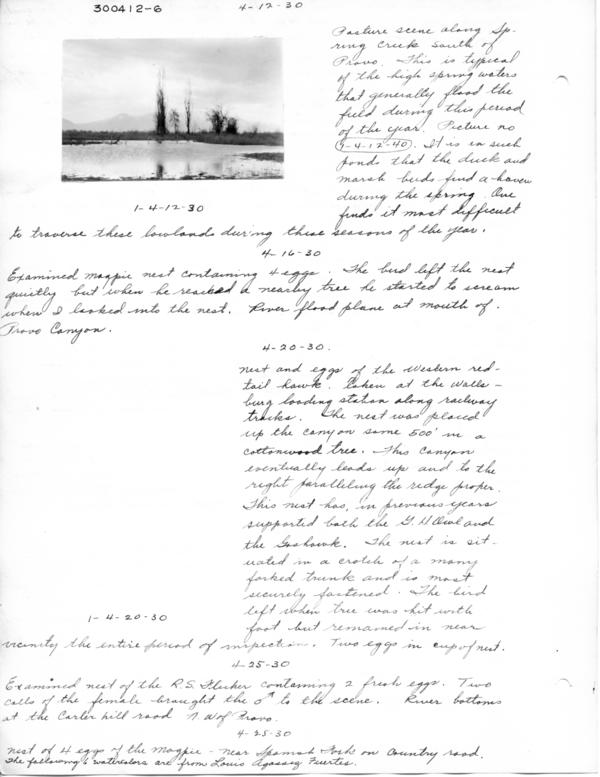 300412-6
4-12-30
Pasture scene along Sp-
ring Creek South of
Provo. This is typical
of the high spring waters
that generally flood the
field during this period
of the year. Picture no
1-4-12-40). It is in such
ponds that the duck and
marsh birds find a haven
during the spring. One
finds it most difficult
1-4-12-30
to traverse these lowlands during these seasons of the year.
4-16-30
Examined magpie nest containing 4 eggs. The bird left the nest
quietly but when he reached a nearby tree he started to scream
when I looked into the nest. River flood plane at mouth of.
Provo Canyon.
4-20-30.
nest and eggs of the Western red-
tail hawk. Taken at the Walls-
burg loading station along railway
tracks. The nest was placed
up the canyon some 500' in a
cottonwood tree. This canyon
eventually leads up and to the
right paralleling the redge proper.
This nest has, in previous years
supported both the G. H Owl and
the Goshawk. The nest is sit-
uated in a crotch of a many
forked trunk and is most
securely fastened. The bird
left when tree was hit with
foot but remained in near
1-4-20-30
vicinity the entire period of inspection. Two eggs in cup of nest.
4-25-30
Examined nest of the R.S. Flicker containing 2 fresh eggs. Two
calls of the female braught the ♂ to the scene. River bottoms
at the Carter hill road N.W of Provo.
4-25-30
nest of 4 eggs of the Magpie - near Spanish Fork on Country road.
The following 6 watercolors are from Louis Agassiz Fuertes.